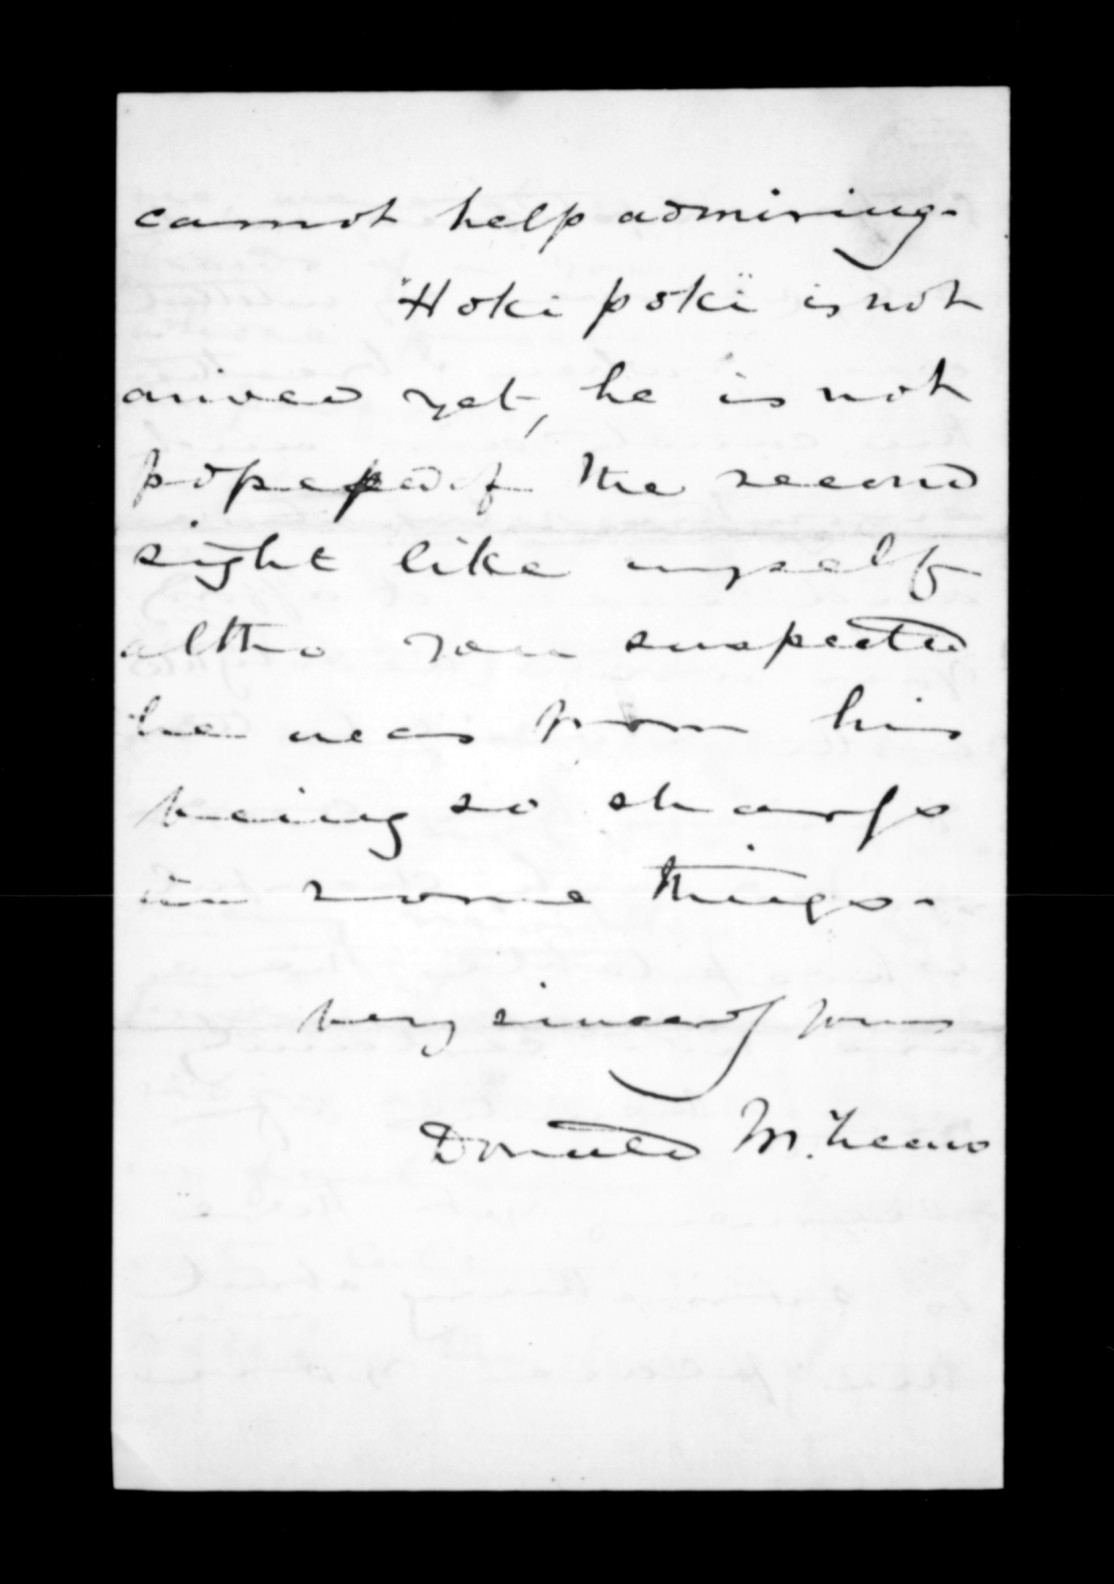 cannot help admiring.
"Hoki poki" is not
arived yet, he is not
possessed of the second
sight like myself
altho you suspected
he was from his
being so sharp
in some things.
very sincerely yours
Donald McLean